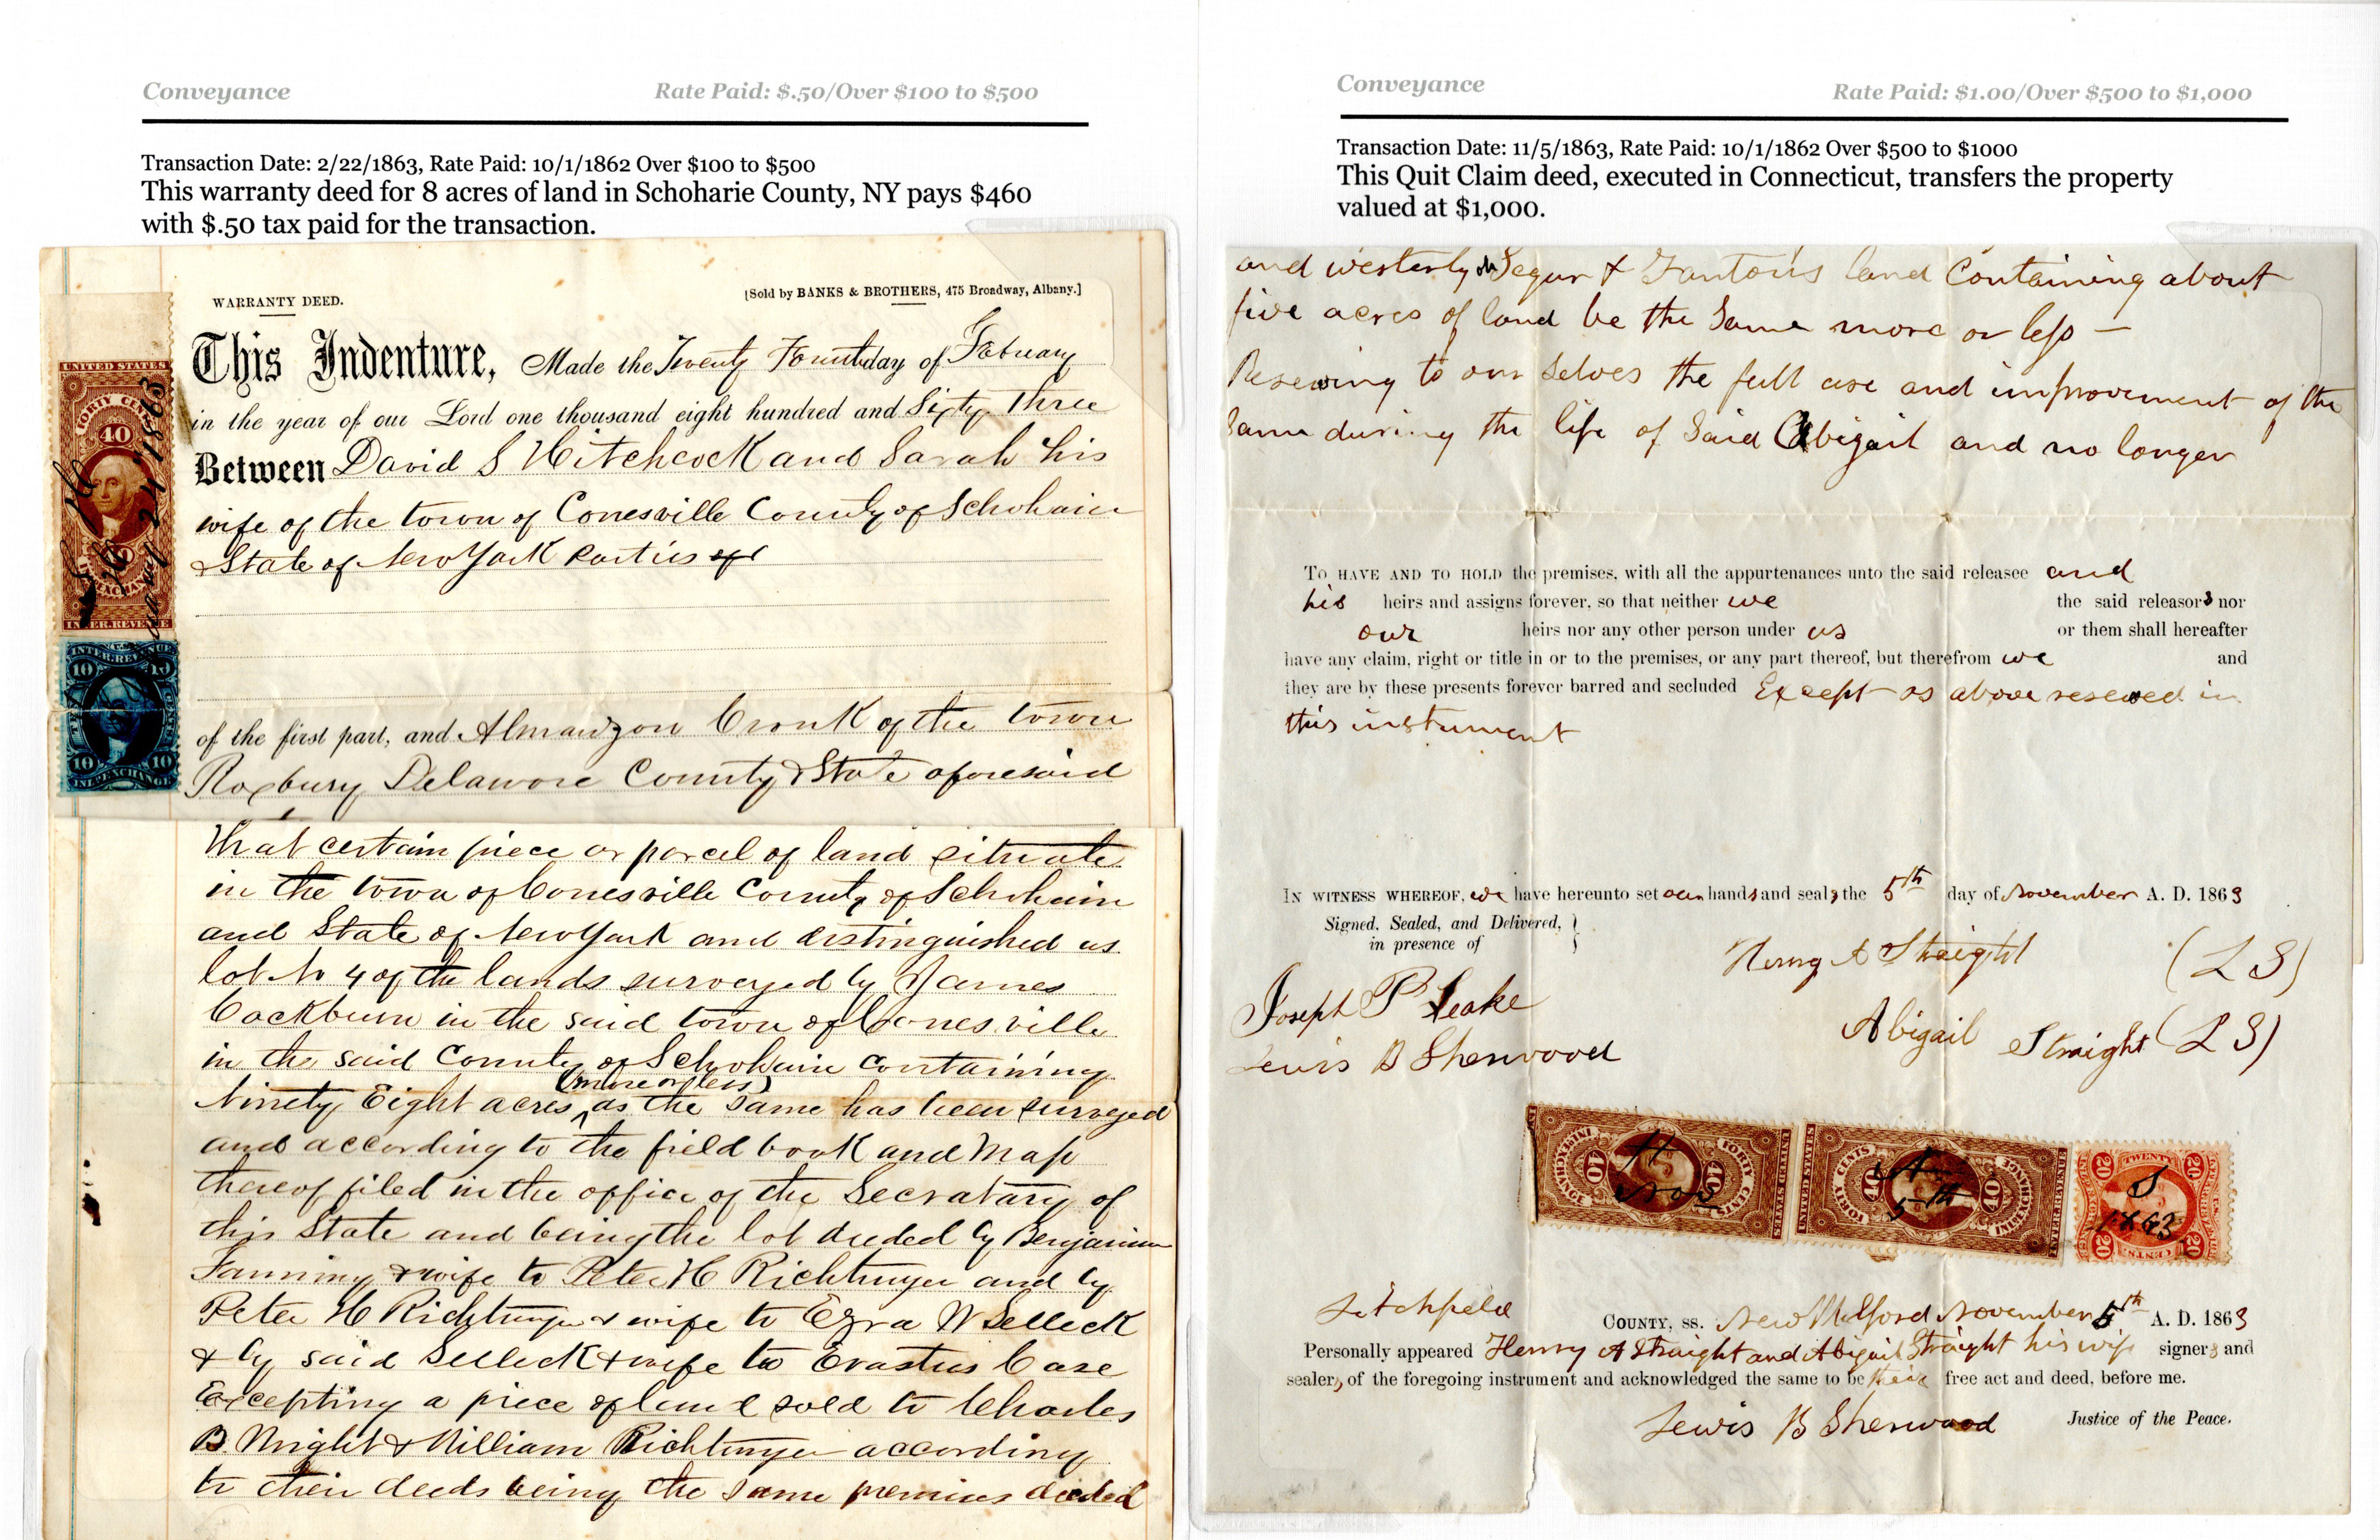 Conveyance
Rate Paid: $.50/Over $100 to $500
Transaction Date: 2/22/1863, Rate Paid: 10/1/1862 Over $100 to $500
This warranty deed for 8 acres of land in Schoharie County, NY pays $460
with $.50 tax paid for the transaction.
WARRANTY DEED.
[Sold by BANKS & BROTHERS, 475 Broadway, Albany.]
This Indenture, Made the Twenty Fourth day of Febuary
in the year of our Lord one thousand eight hundred and Sixty Three
Between David S Hitchcock and Sarah his
wife of the town of Conesville County of Schoharie
& State of New York parties of
of the first part, and Almanzon Cronk of the town
Roxbury Delaware County & State aforesaid
that certain piece or parcel of land situate
in the town of Conesville County of Schoharie
and State of New York and distinguished as
lot No 4 of the lands surveyed by James
Cockburn in the said town of Conesville
in the said County of Schoharie containing
(more or less)
Ninety Eight acres as the same has been surveyed
and according to the field book and Map
thereof filed in the office of the Secratary of
this State and being the lot deeded by Benjamin
Fanning & wife to Peter H Richtmyer and by
Peter H Richtmyer & wife to Ezra W Selleck
& by said Selleck & wife to Erastus Case
Excepting a piece of land sold to Charles
B. Wright & William Richtmyer according
to their deeds being the same premises deeded
UNITED STATES
FORTY CENTS
40
INTER. REVENUE
24 1863
INTER. REVENUE
10 10
10 10
Conveyance
Rate Paid: $1.00/Over $500 to $1,000
Transaction Date: 11/5/1863, Rate Paid: 10/1/1862 Over $500 to $1000
This Quit Claim deed, executed in Connecticut, transfers the property
valued at $1,000.
and westerly on Segur & Fanton's land Containing about
five acres of land be the Same more or less —
Reserving to our Selves the full use and improvement of the
Same during the life of Said Abigail and no longer
TO HAVE AND TO HOLD the premises, with all the appurtenances unto the said releasee and
his heirs and assigns forever, so that neither we the said releasors nor
our heirs nor any other person under us or them shall hereafter
have any claim, right or title in or to the premises, or any part thereof, but therefrom we and
they are by these presents forever barred and secluded Except as above reserved in
this instrument
IN WITNESS WHEREOF, we have hereunto set our hands and seals the 5th day of November A. D. 1863
Signed, Sealed, and Delivered,
in presence of
Henry A Straight (L S)
Joseph P Leake
Abigail Straight (L S)
Lewis B Sherwood
INTER. REVENUE
EXCHANGE
40 40
FORTY CENTS
UNITED STATES
H
Nov
UNITED STATES
FORTY CENTS
40 40
EXCHANGE
INTER. REVENUE
A
5th
TWENTY
20 20
S
1863
20 CENTS 20
Litchfield COUNTY, ss. New Milford November 5th A. D. 1863
Personally appeared Henry A Straight and Abigail Straight his wife signers and
sealers, of the foregoing instrument and acknowledged the same to be their free act and deed, before me.
Lewis B Sherwood Justice of the Peace.